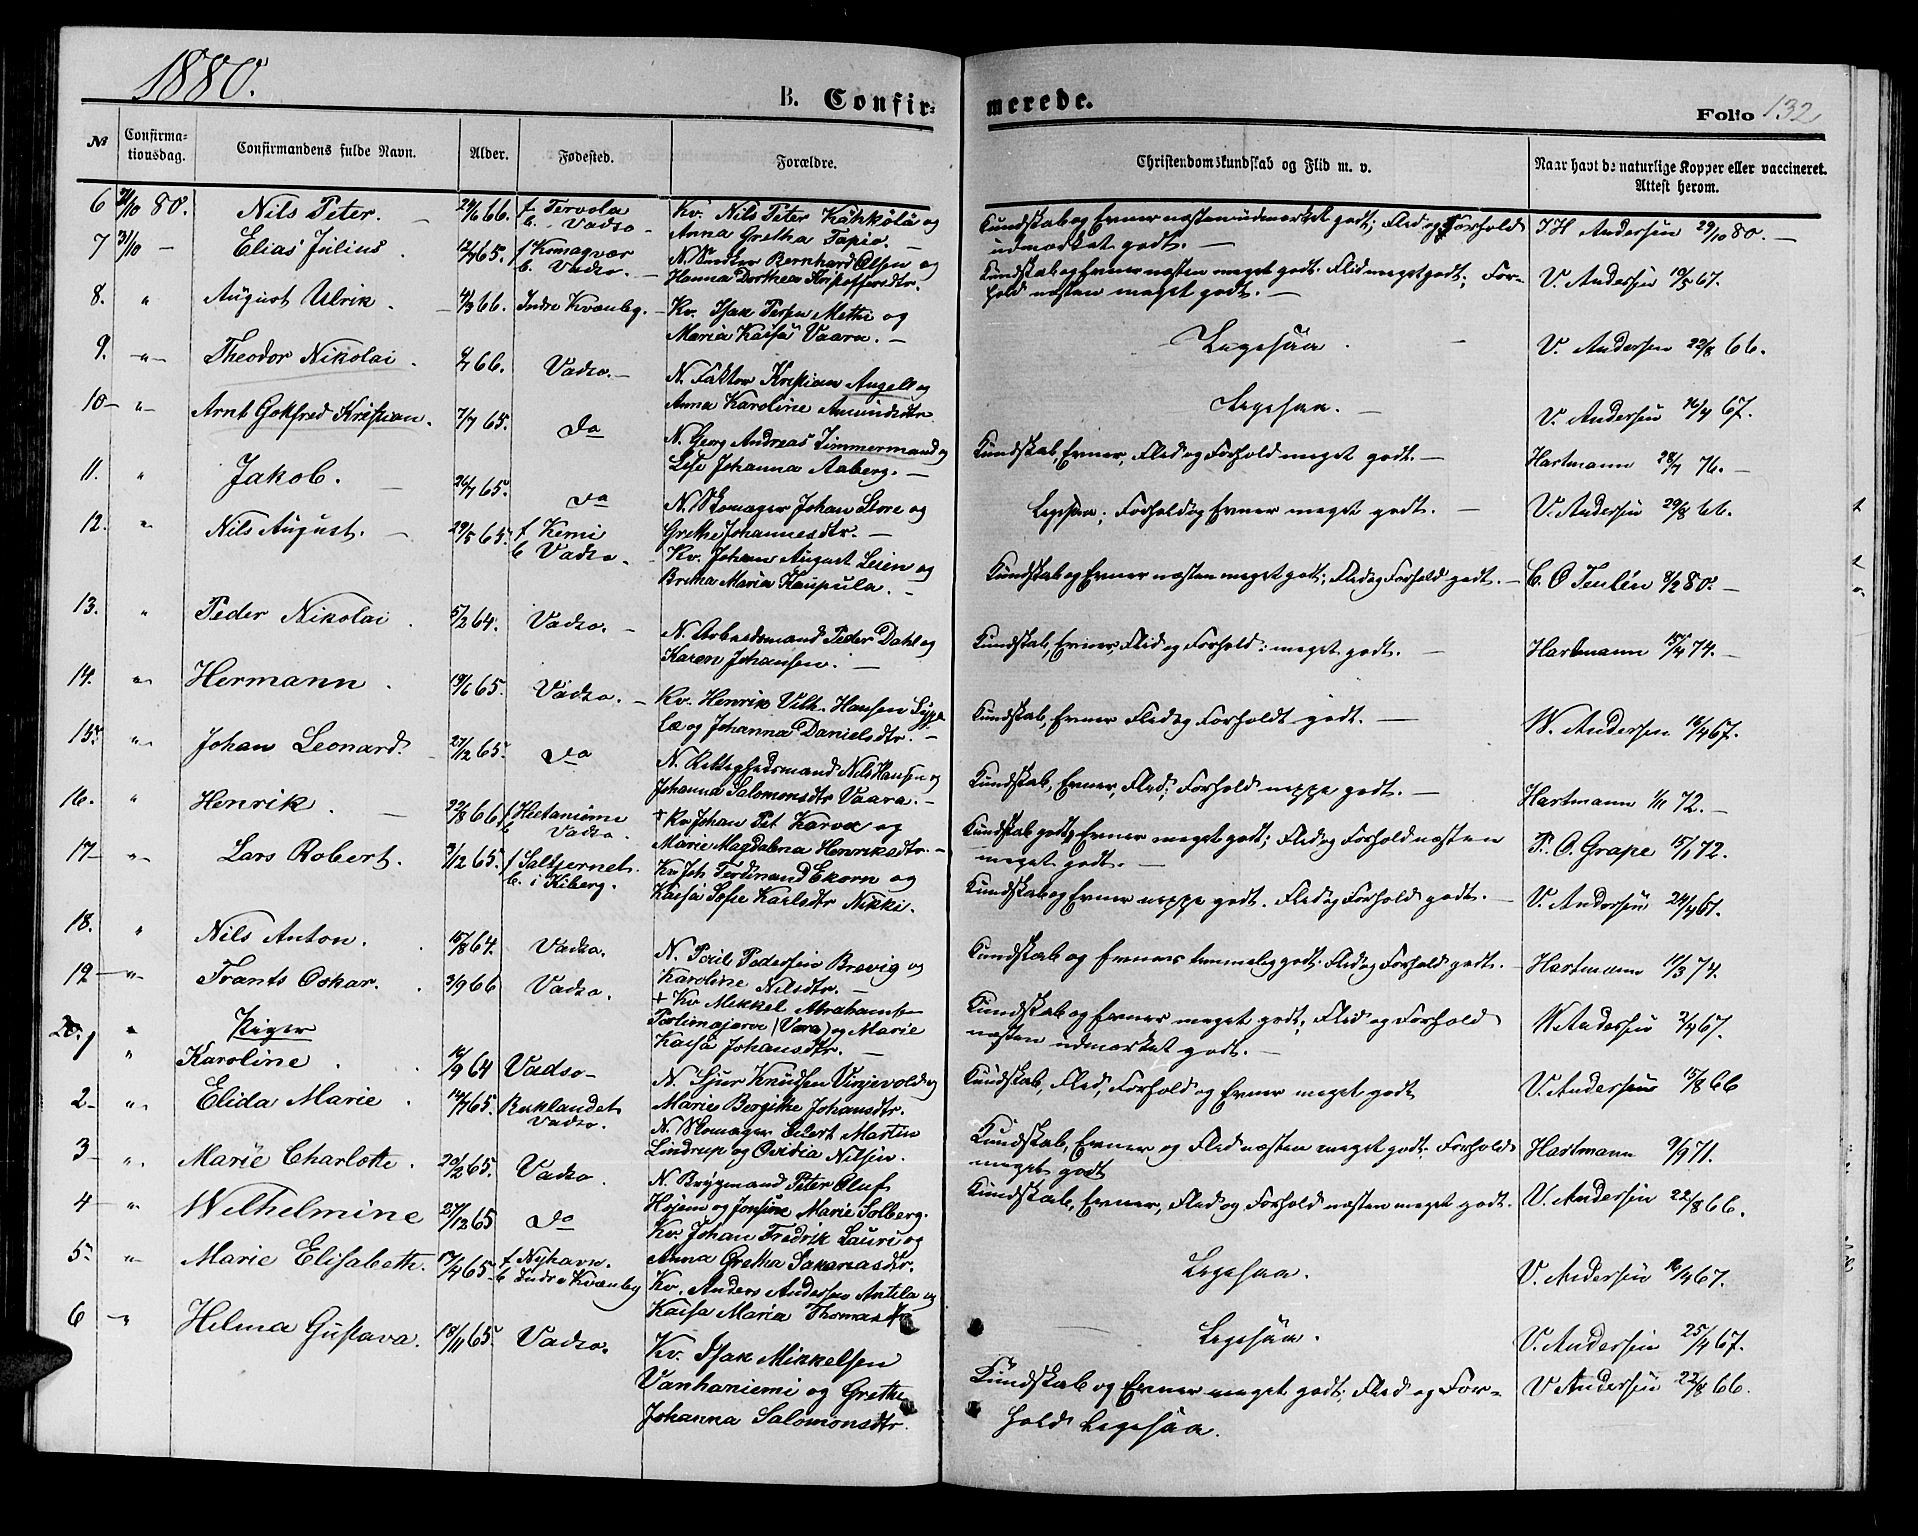 1880.
B. Confir-
merede.
Folio 132
№ Confirma-
tionsdag. Confirmandens fulde Navn. Alder. Fødested. Forældre. Christendomskundskab og Flid m. v. Naar havt de naturlige Kopper eller vaccineret.
Attest herom.
6 80. Nils Peter. — 66. f. Tervola Kv. Nils Peter Kähkölä og Kundskab og Evner næsten udmærket godt; Flid og Forhold I H Andersen 29/10 80. —
b. Vadsø — Anna Gretha Tapio. — udmærket godt. —
7 31/10 — Elias Julius. 65. f Komagvær Bernhard Olsen og Kundskab og Evner næsten meget godt. Flid meget godt; For- V. Andersen 19/5 67.
b. Vadsø. — Hanna Dorthea Kristoffersdtr. hold næsten meget godt. —
8. " August Ulrik. — 4/3 66. Indre Kvænby. — Kv. Isak Persen Methi og Ligesaa. — V. Andersen 22/8 66.
Maria Kaisa Vaara. —
9. -"- Theodor Nikolai. 66. Vadsø. — N. Faktor Kristian Angell og Ligesaa. — V. Andersen 16/4 67.
Anna Karoline Amundsdtr.
10 — -"- Arnt Gotfred Kristian. 7/7 65. do N. Georg Andreas Zimmermand og Kundskab, Evner, Flid og Forhold meget godt. — Hartmann 28/7 76. —
Lise Johanna Aaberg. —
11. " Jakob. — 65. do N. Skomager Johan Store og Ligesaa; Forhold og Evner meget godt. — V. Andersen 29/8 66.
Grethe Johannesdtr. —
12. " Nils August. — 29/5 65. f. Kemi Kv. Johan August Leien og Kundskab og Evner næsten meget godt; Flid og Forhold godt. — C. O 8/2 80. —
b Vadsø. Britha Maria Kaupula. —
13. " Peder Nikolai. 5/2 64. Vadsø. — N. Arbeidsmand Peder Dahl og Kundskab, Evner, Flid og Forhold: meget godt. — Hartmann 15/4 74. —
Karen Johansen. —
14. -"- Hermann. 19/6 65. Vadsø. — Kv. Henrik Vilh. Hansen Kundskab, Evner Flid og Forholdt godt. — W. Andersen 16/4 67.
og Johanna Danielsdtr. —
15. " Johan Leonard. — 27/12 65. do N. Nils Hansen og Kundskab, Evner, Flid; Forhold neppe godt. — Hartmann 1/11 72. —
Johanna Salomonsdtr Vaara. —
16. " Henrik. — 22/8 66 f Hietaniemi + Kv Johan Pet Karva og Kundskab godt, Evner meget godt; Flid og Forhold næsten P. O. Grape 15/1 72.
b Vadsø. Marie Magdalena Henriksdtr. — meget godt. —
17 — -"- Lars Robert. 9/12 65. f Saltjernet. Kv Joh Ferdinand Ekorn og Kundskab og Evner neppe godt. Flid og Forhold godt. — V. Andersen 24/4 67.
b. i Kiberg. Kaisa Sofie Karlsdtr Nikki.
18. " Nils Anton. 15/8 64. Vadsø. N. Poul Pedersen Brevig og Kundskab og Evner temmelig godt. Flid og Forhold godt. — Hartmann 11/3 74.
Karoline Nilsdtr. —
19 — -"- Frants Oskar. 3/9 66 Vadsø. + Kv Mikkel Abrahamsen Kundskab og Evner meget godt; Flid og Forhold W Andersen 2/4 67.
(Vara) og Marie næsten udmærket godt. —
Kaisa Johansdtr. —
Piger
" Karoline. 16/9 64 Vadsø — N. Sjur Knudsen Vinjevold og Kundskab, Flid, Forhold og Evner meget godt V. Andersen 15/8 66
Marie Bergithe Johansdtr.
2 - " Elida Marie. 14/7 65. N. Skomager Eilert Martin Kundskab, Evner og Flid næsten meget godt. Forhold Hartmann 9/9 71.
Vadsø. Lindrup og Ovidia Nilsen. meget godt
3 - " Marie Charlotte. 20/2 65. Vadsø. N. Brygmand Peter Oluf Kundskab, Evner, Flid og Forhold næsten meget godt. V. Andersen 22/8 66.
Højem og Jonsine Marie Solberg.
4 - " Wilhelmine 27/12 65 do Kv. Johan Fredrik Lauri og Ligesaa. V. Andersen 16/4 67.
Anna Gretha Sakariasdtr.
5 - " Marie Elisabeth. 17/4 65 f Nyhavn. Kv. Anders Andersen Antila og Ligesaa. V. Andersen 25/4 67.
b Indre Kvænby Kaisa Maria Thomasdtr
6 - " Helma Gustava. 18/11 65. Vadsø. Kv. Isak Mikkelsen Kundskab og Evner meget godt; Flid og For- V Andersen 22/8 66.
Vanhaniemi og Grethe hold Ligesaa.
Johanna Salomonsdtr.